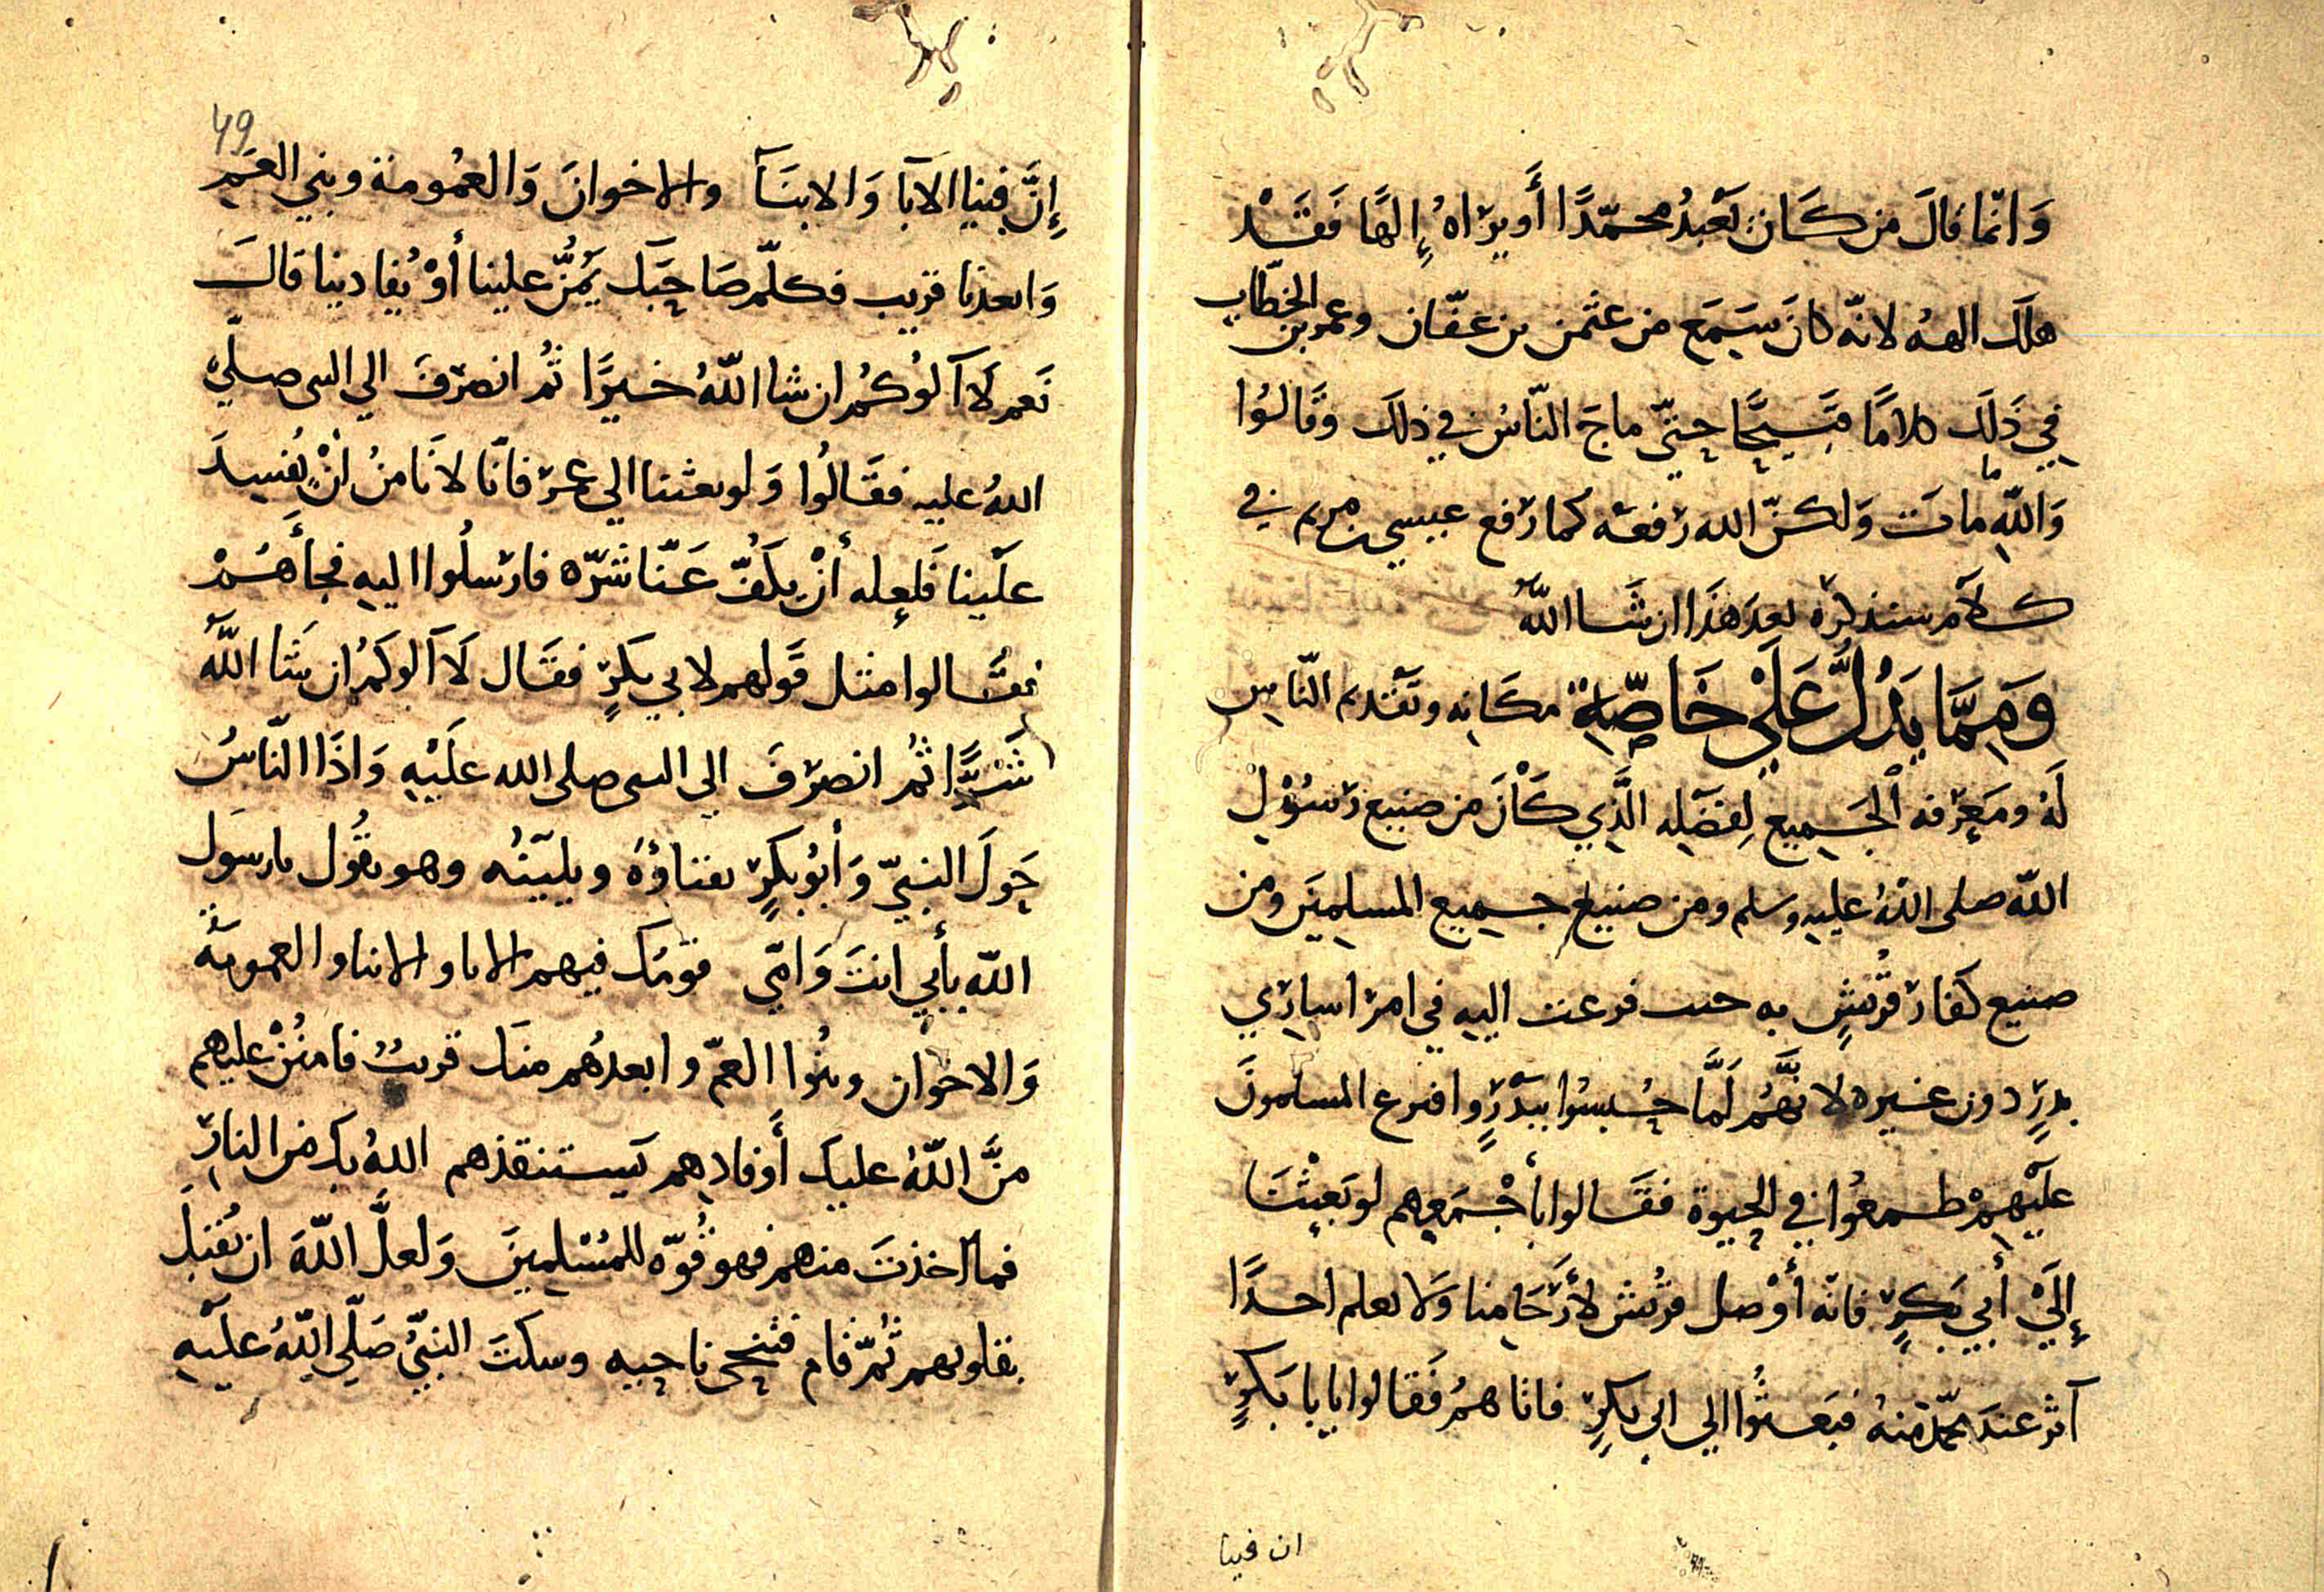 وَانّما قالَ من كَانَ يَعْبُدُ محمّدًا أَو يرَاهُ إِلهًا فَقَدْ
هلَك الهه لانّه كانَ سَمِعَ من عثمن بن عفّان وعمر بن الخطّاب
في ذَلِك كلامًا قَبيحًا حتّى ماجَ النّاسُ في ذلك وَقَالُوا
وَاللّهِ ما مات وَلكنّ الله رَفعَه كما رَفع عيسى بن مريم في
كلاَمٍ سنذكرُه بعدَ هَذَا ان شَا اللّهُ
وَمِمَّا يَدُلُّ عَلَى خَاصَّةِ مكَانِه وتَقديم النّاسِ
لَهُ ومَعرفة الجَميعِ لِفضَلِه الَّذِي كَانَ من صنيع رَسُوْلِ
اللّه صلى اللّهُ عليهِ وسلم ومن صنيع جميع المسلمِيَن ومن
صنيع كفار قُريشٍ به حيث فزعت اليهِ في امر اسارَي
بدرٍ دون غيره لانَّهُم لَمَّا حُبِسُوا ببَدْرٍ واقترع المسلمونَ
علَيهِمْ طمعُوا في الحيوة فقَالوا بأَجْمَعِهم لو بَعثْنَا
إِلَيْ أَبِي بَكرٍ فانّه أَوْصل قرُيش لأَرْحَامِنا وَلا نعلم احدًا
آثر عندَ محمّد منهُ فبَعثُوا الي ابي بكرٍ فاتاهمُ فَقالوا يابا بَكرٍ
ان فينا
49
إِنَّ فينا الابَآ وَالابنَآ والاخوانَ وَالعُمومة وبني العَمِ
وَابعدنا قريب فكلّم صَاحِبَك يَمُنُّ علينا أَوْ يُفادينا قالَ
نَعم لاَ آلوُكمُ ان شا اللّهُ خيرًا ثُم انصرَفَ الي النبي صلّي
اللهُ عليه فقَالُوا وَلو بعثنا الي عمرَ فانّا لا نَامنُ انْ يُفسِدَ
علَينا فَلعله أَنْ يكَفَّ عَنّا شَرّه فارسلُوا اليهِ فجأَهُمْ
فقَالوا مثل قَولهم لابي بكرٍ فقَال لاَ آلوكمُ ان شَا اللّهُ
شَرًّا ثُم انصرَفَ الي النبي صلى الله علَيْهِ وَاذَا النّاسُ
حَولَ النبيّ وَأَبُو بكرٍ يفثاؤهُ ويليّنُه وهو يقُول يارسوَل
اللّه بأَبي انتَ وَامّي قومُك فيهم الابا والابنا والعمومَةُ
وَالاخوان وبنُوا العمّ وابعدُهم منك قريبُ فامنُنْ عليهم
منَّ اللّهُ عليك أَوفادِهم يَستنقذهم اللهُ بك من النارِ
فما اخذتَ منهم فهو قُوّه للمُسْلمِينَ وَلعلَّ اللّهَ ان يُقبلَ
بقلوبهم ثُمّ قام فتنحى ناحيِه وسكتَ النبيُّ صَلّي اللّهُ علَيهِ